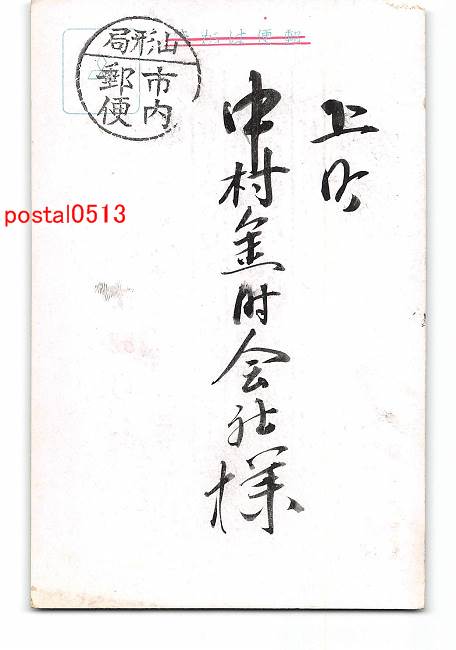 郵便はがき
山形局
市内
郵便
上町
中村合財会社様
postal0513